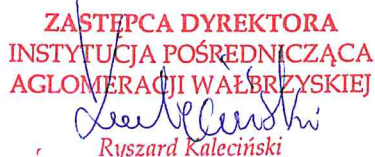 ZASTĘPCA DYREKTORA
INSTYTUCJA POŚREDNICZĄCA
AGLOMERACJI WAŁBRZYSKIEJ
Ryszard Kaleciński